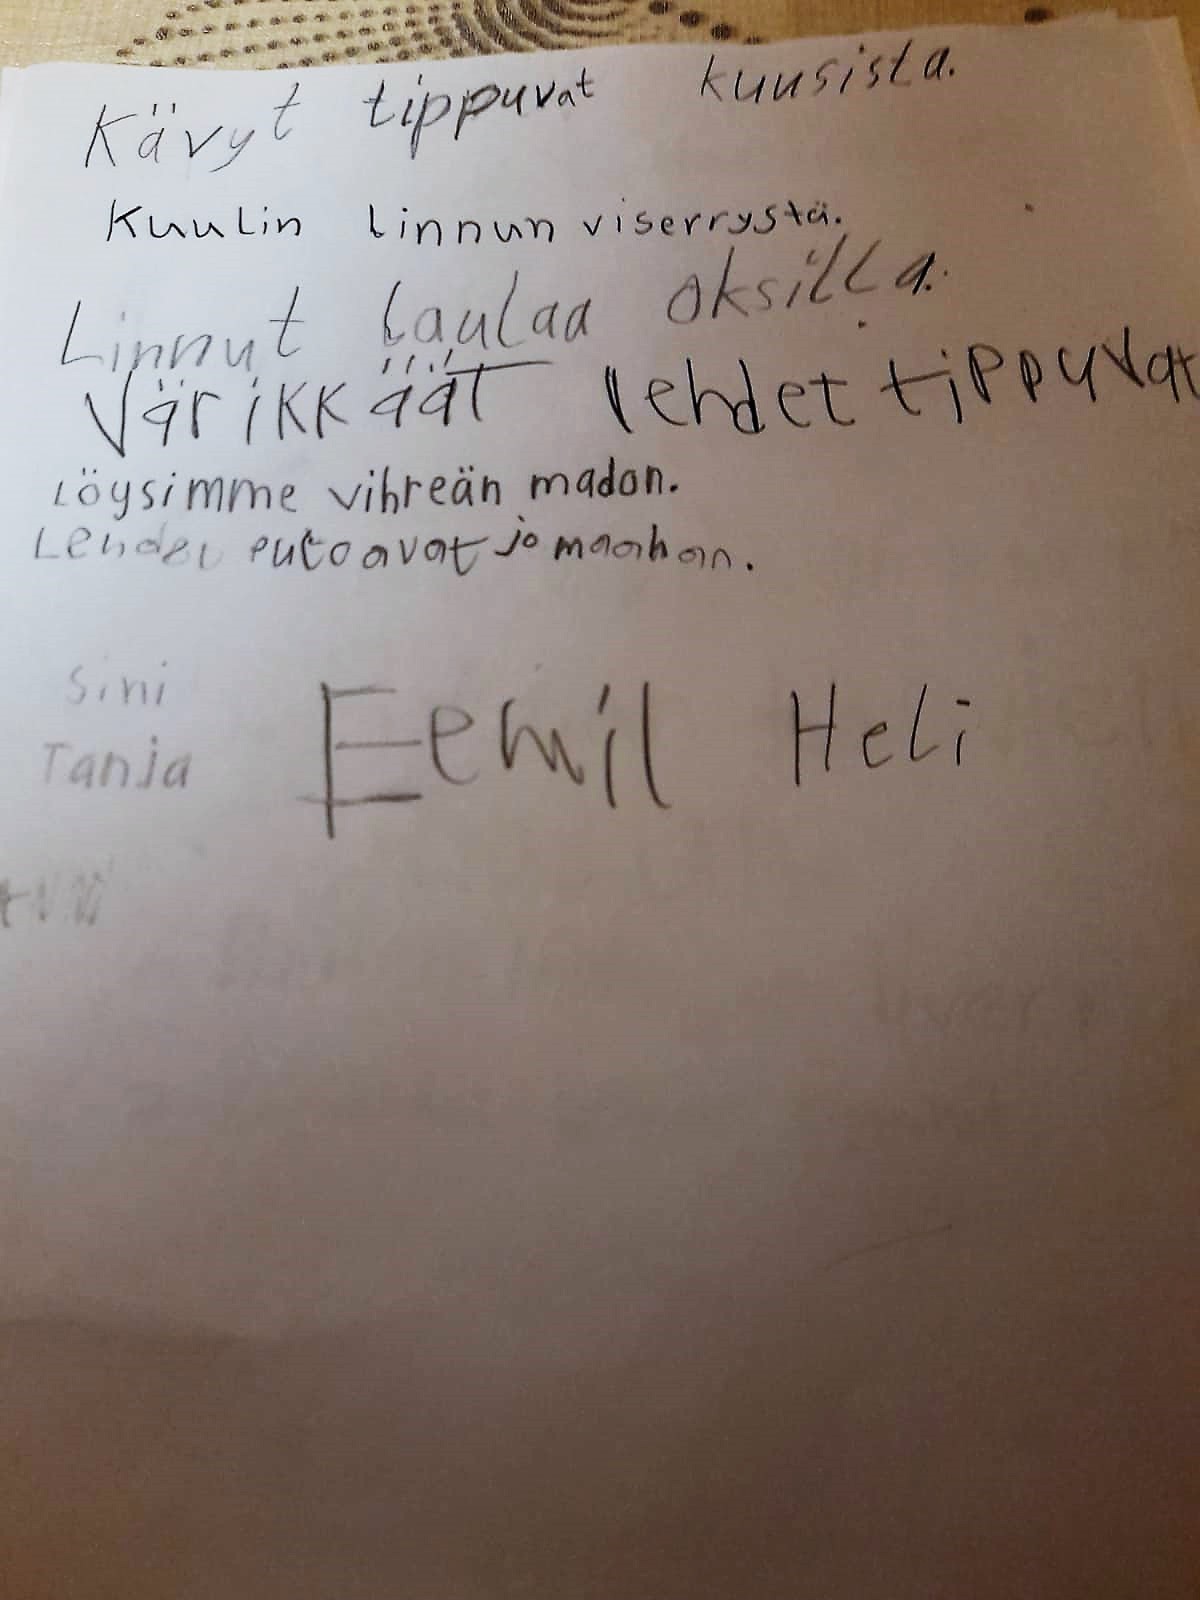 Kävyt tippuvat kuusista.
Kuulin linnun viserrystä.
Linnut laulaa oksilla.
Värikkäät lehdet tippuvat
Löysimme vihreän madon.
Lehdet putoavat jo maahan.
Sini
Tanja Eemil Heli